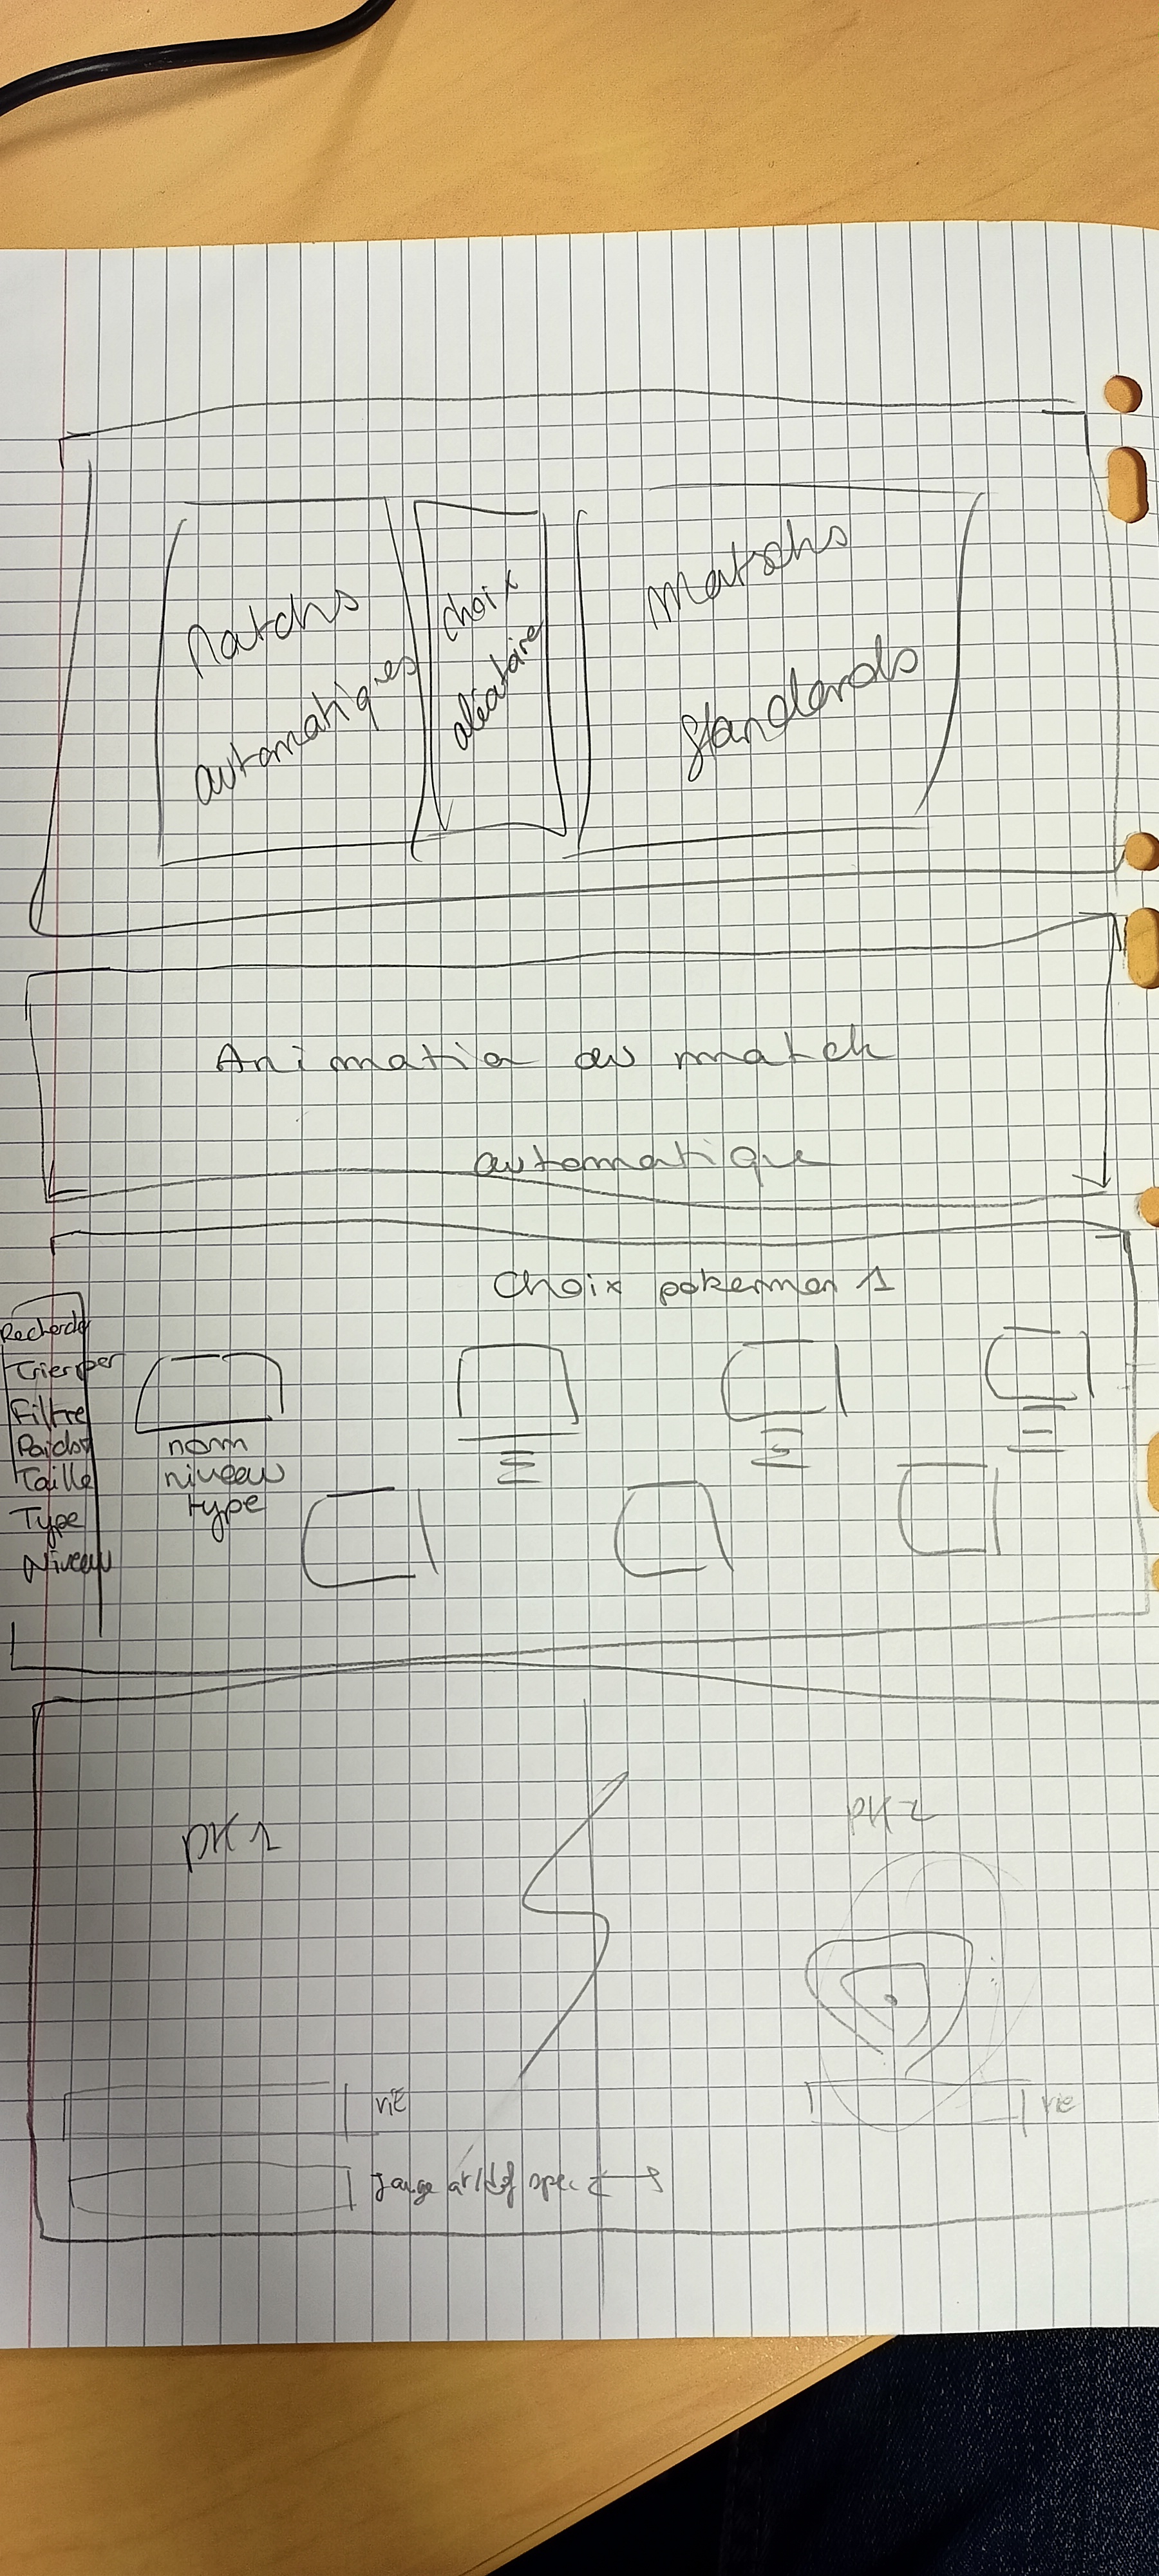 Matchs
automatiques
choix
aléatoire
Matschs
standards
Animation du match
automatique
Choix pokemon 1
Recherche
Trier par
Filtre
Poids
Taille
Type
Niveau
nom
niveau
type
PK 1
PK 2
vie
vie
Jauge